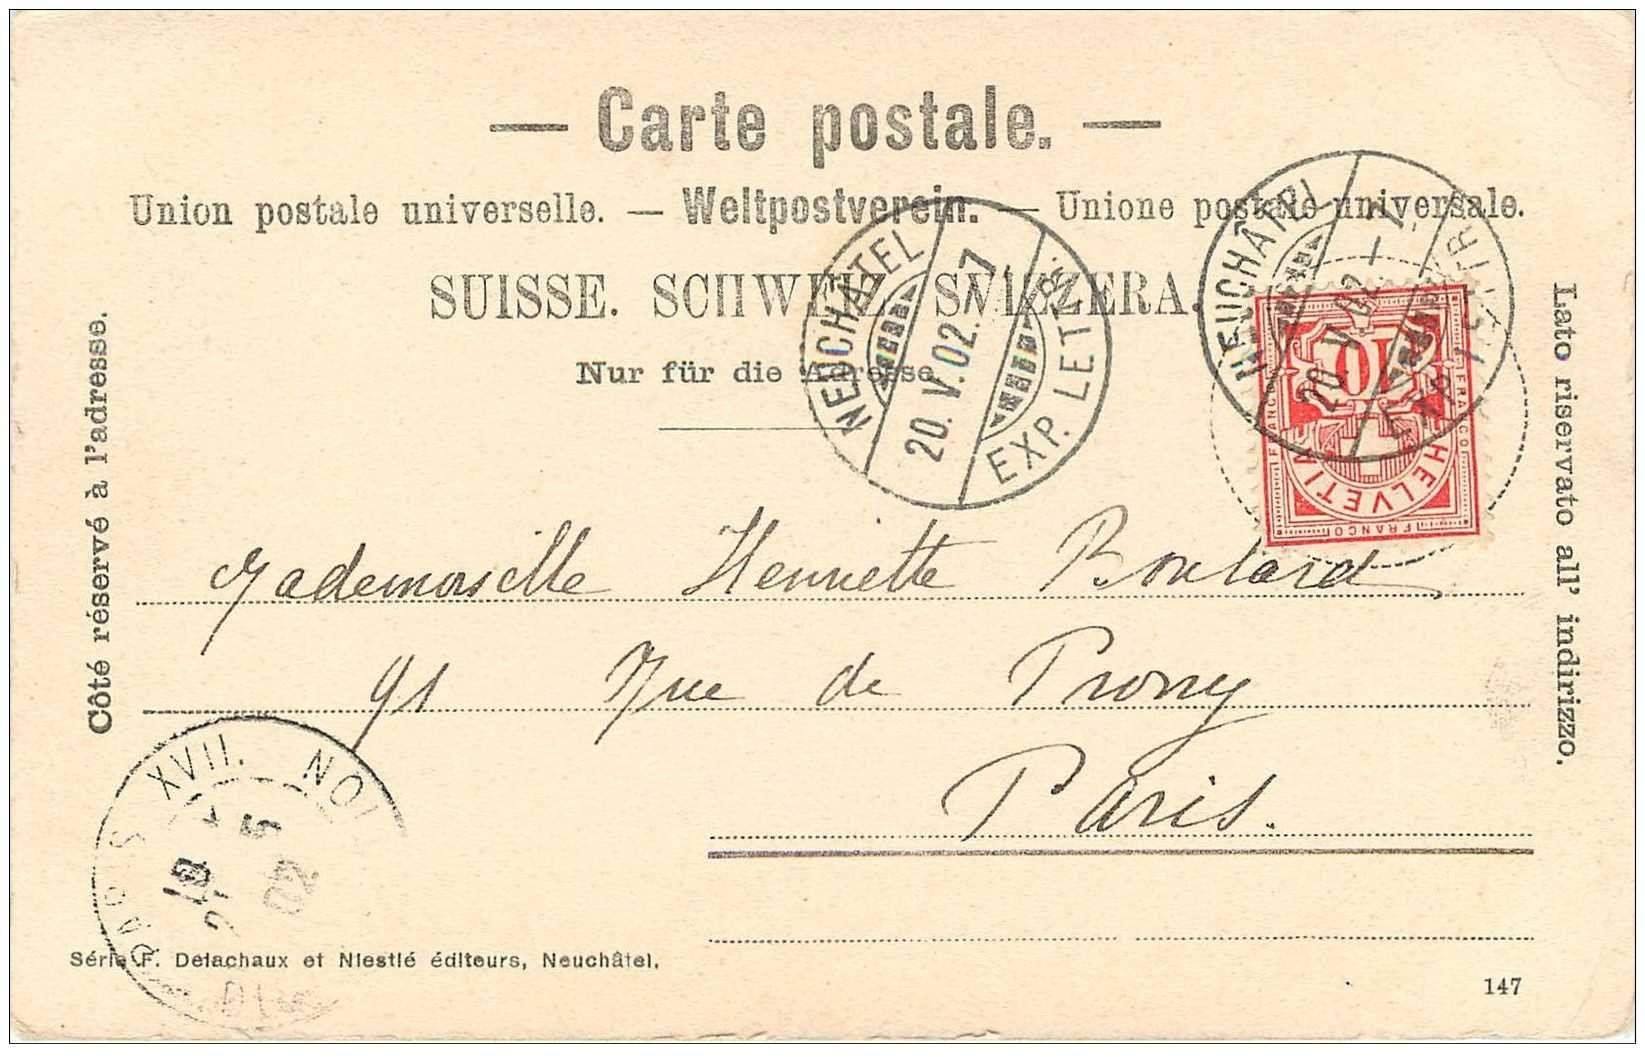 — Carte postale. —
Union postale universelle. — Weltpostverein. — Unione postale universale.
SUISSE. SCHWEIZ. SVIZZERA.
Nur für die Adresse.
Côté réservé à l'adresse.
Lato riservato all' indirizzo.
NEUCHÂTEL
20. V. 02. – 7
EXP. LETTR.
NEUCHÂTEL
20 V 02 – 7
EXP. LETTR.
10
HELVETIA
FRANCO
FRANCO
FRANCO
FRANCO
Mademoiselle Henriette Boulard
91 Rue de Prony
Paris.
PARIS XVII.
21 5 02
Série F. Delachaux et Niestlé éditeurs, Neuchâtel.
147